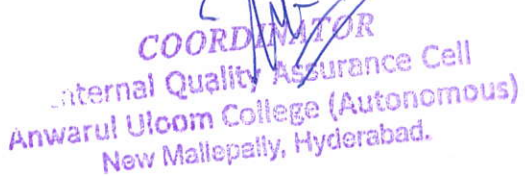 COORDINATOR
Internal Quality Assurance Cell
Anwarul Uloom College (Autonomous)
New Mallepally, Hyderabad.